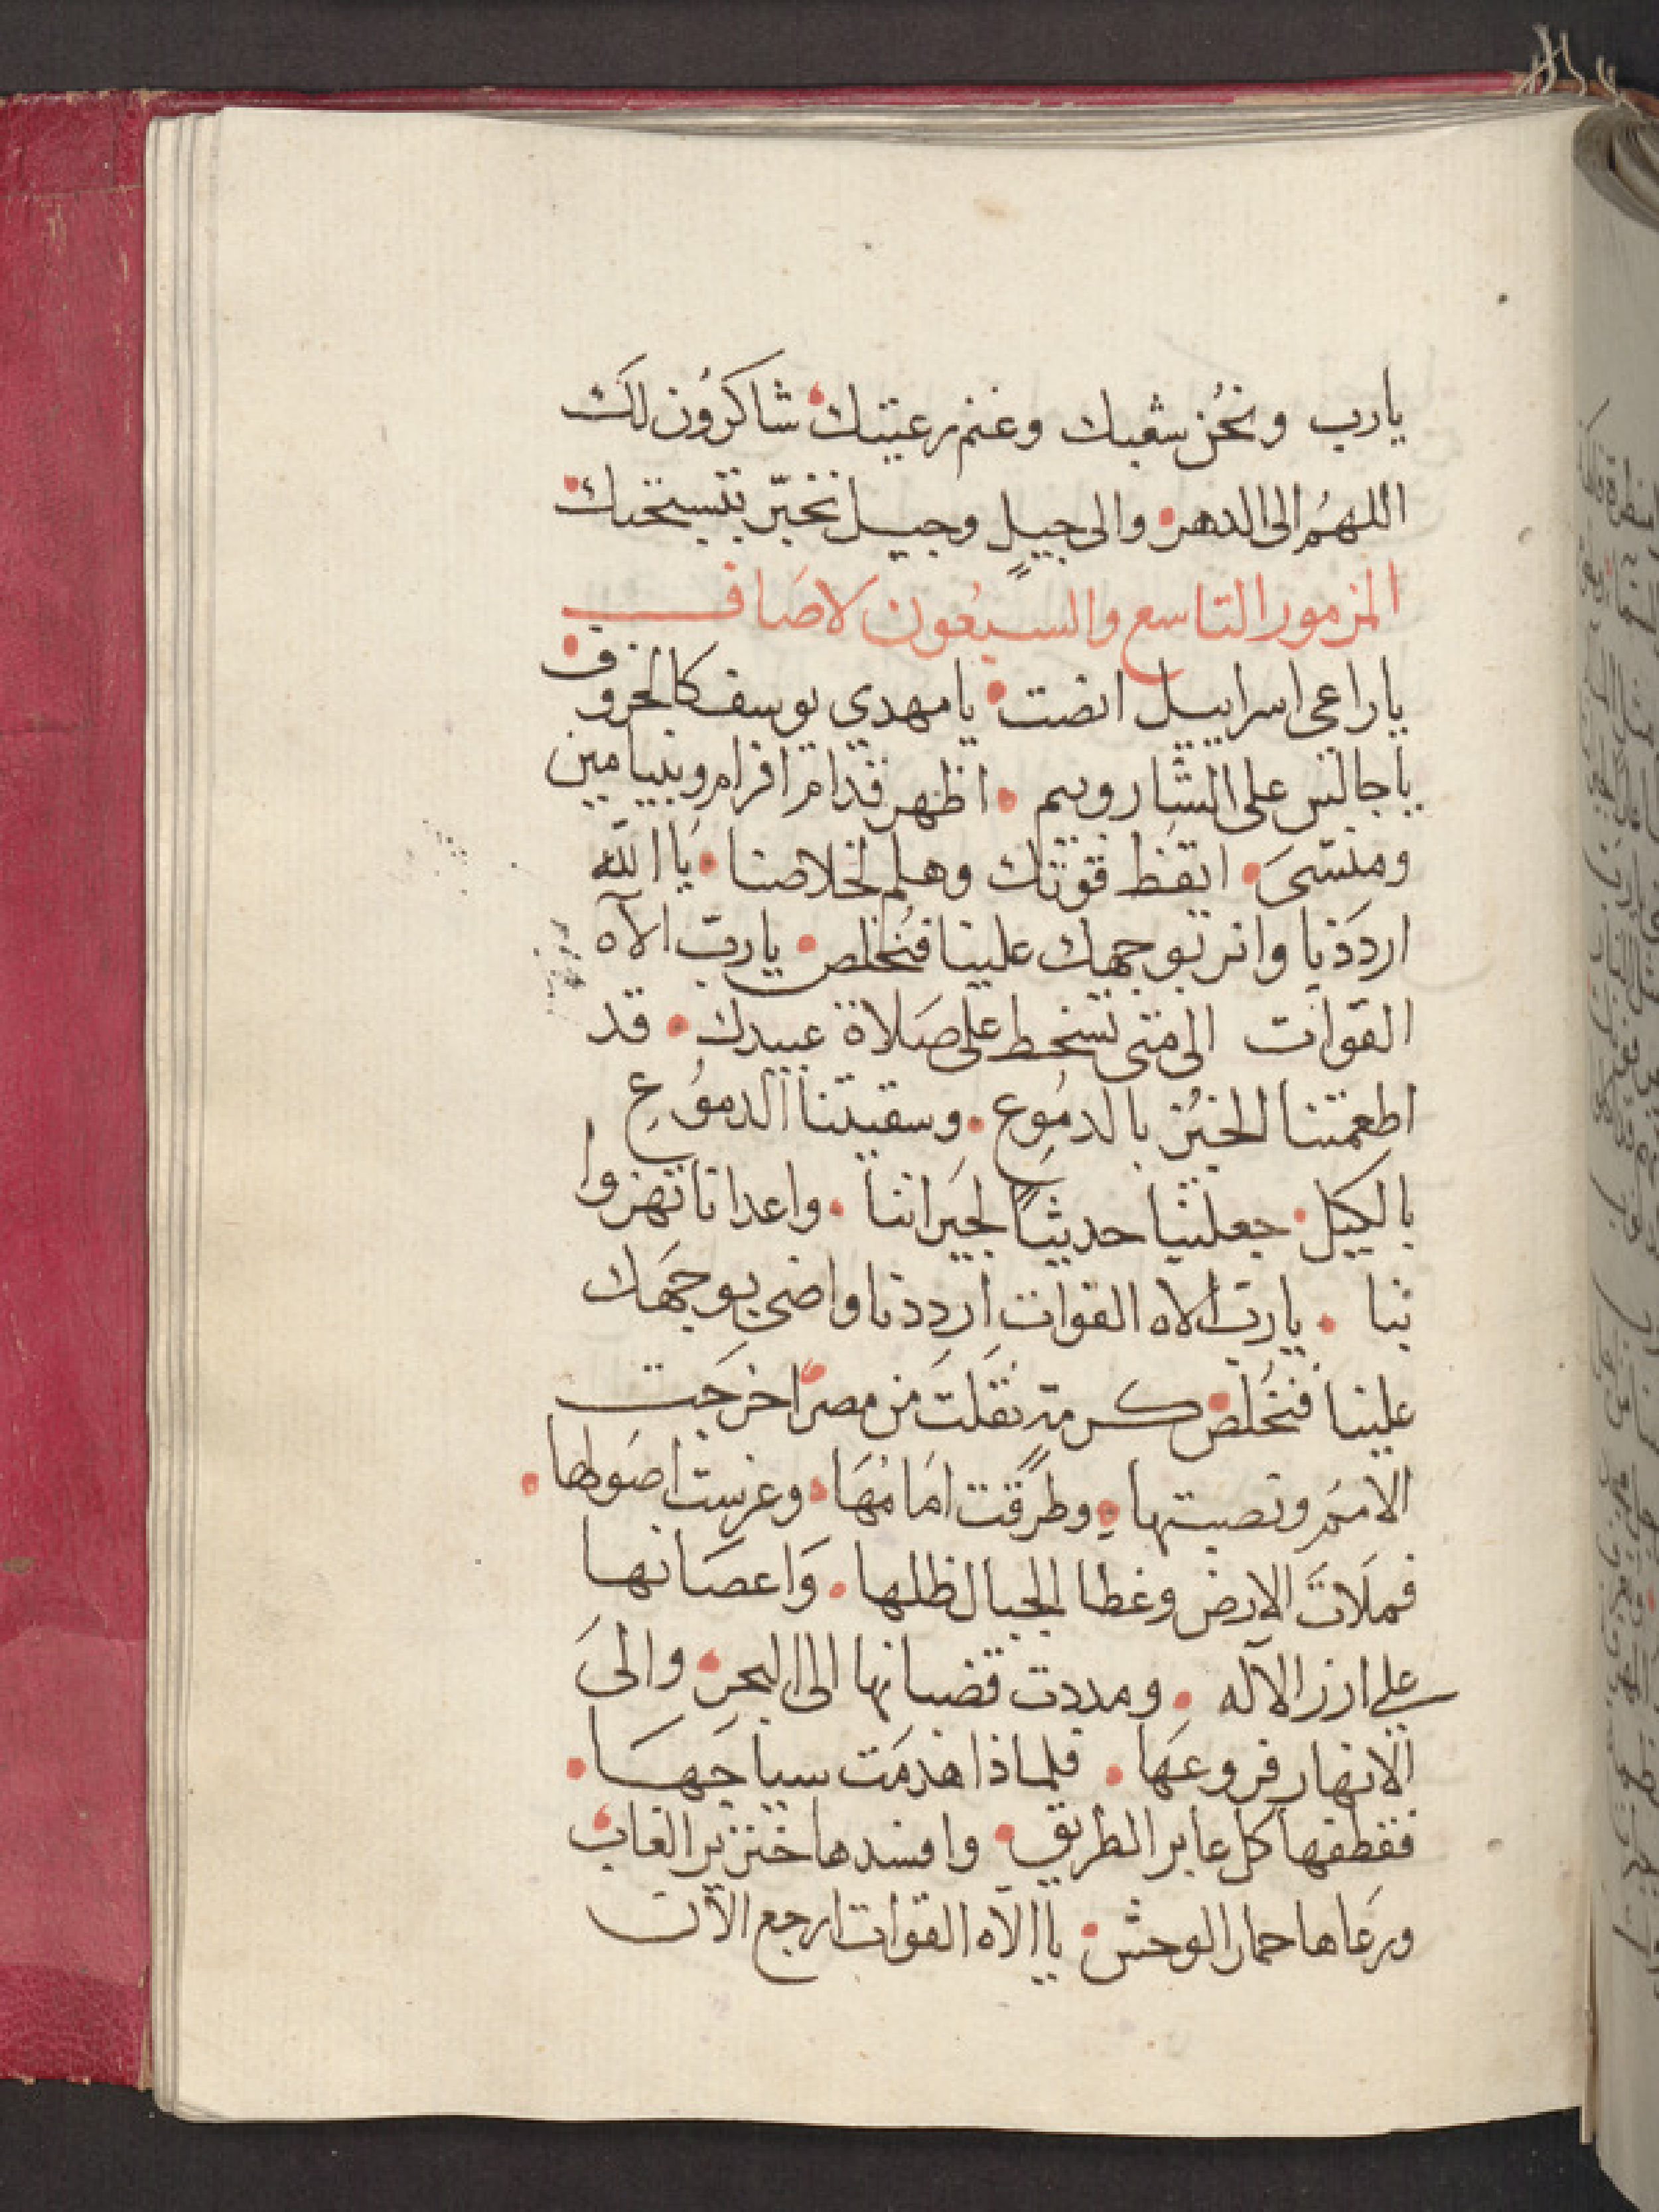 يارب ونحُن شعبك وغنم رعيتك شاكرُون لكَ
اللهُم الى الدهر والى جيلٍ وجيل نخبّر بتسبحتك
المزمور التاسع والسبعُون لاصَاف
ياراعى اسراييل انصت يامهدي يوسف كالخروف
ياجالس على الشاروبيم اظهر قدام افرام وبنيامين
ومنسىَ ايقظ قوتك وهلم لخلاصنا يَا الله
ارددَنا وانر بوجهك علينا فنُخلص يارب الآه
القوات الى متى تسخط على صَلاة عبيدك قد
اطعمتنا الخبُز بالدمُوع وسقيتنا الدموُع
بالكيل جعلتنا حديثاً لجيَراننا واعدانا تهزوا
بنا يارب الاه القوات ارددنا واضي بوجهَك
علينا فنخُلص كرمةٍ نقلتَ من مصر اخرجَت
الاممَ ونصبتها وطرقَت امَامُهَا وغرست اصَولها
فملَات الارض وغطا الجبال ظلها وَاغصَانها
على ارز الآله ومددت قضبانها الى البحر والىَ
الانهار فروعَها فلماذا هدمَت سياجَهَا
فقطفها كل عابر الطريق وافسدها خنزير الغاب
ورعَاها حمار الوحش ياالآه القوات ارجع الآن